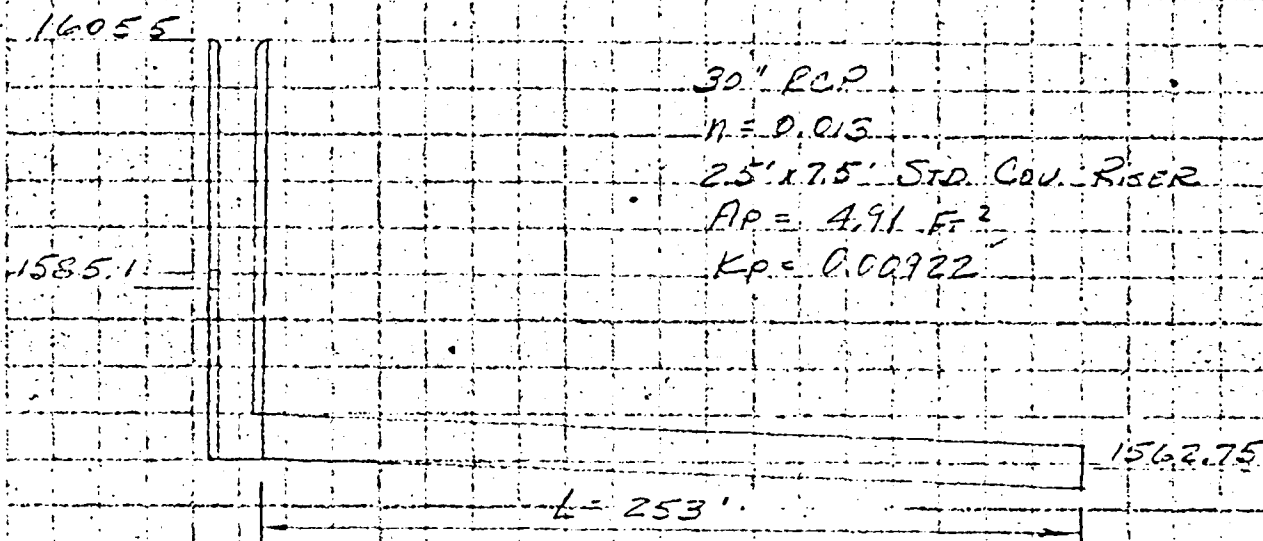 1605.5
30" RCP
n = 0.013
2.5' x 7.5' STD. COV. RISER
Ap = 4.91 FT²
1585.1
Kp = 0.00922
1562.75
L = 253'